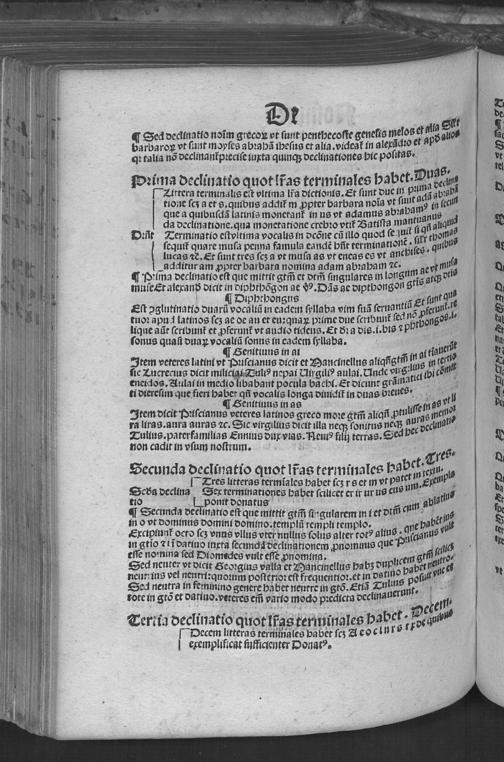 De
¶ Sed declinatio noim grecoꝝ vt sunt penthecoste genesis melos et alia Sed et
barbaroꝝ vt sunt moyses abrahā ihesus et alia. videat̉ in alexādro et apd̓ alios
qꝛ talia nō declinant̉ precise iuxta quinqꝫ declinationes hic positas.
Prima declinatio quot lr̄as terminales habet. Duas.
Littera terminalis est vltima lr̄a dictionis. Et sunt due in prima declina
tione scꝫ a et s. quibus addit̉ m ꝓpter barbara nola vt sunt adā abrahā
que a quibusdā latinis monerant̉ in us vt adamus abrahamꝰ in secunda
da declinatione. qua moneratione crebro vtit̉ Baptista mantuanus
Dn̄t Terminatio est vltima vocalis in
sequit̉ quare musa penna famula eandē hn̄t terminationē. sil̓r thomas
lucas ꝛc. Et sunt tres scꝫ a vt musa as vt eneas es vt anchises. quibus
additur am ꝓpter barbara nomina adam abrabam ꝛc.
¶ Prima declinatio est que mittit gtm̄ et dtm̄ singulares in longum ae vt musa
muse Et alexand̉ dicit in diphthōgon ae
¶ Diphthongus
Est ꝯglutinatio duarū vocaliū in eadem syllaba vim suā seruantiū Et sunt qua
tuor apud latinos scꝫ ae oe an et eu: quaꝝ prime due scribunt̉ sed nō
lique aūt scribunt̉ et ꝓferunt̉ vt audio tideus. Et
sonus quasi duaꝝ vocaliū sonus in eadem syllaba.
¶ Genitiuus in ai
Item veteres latini vt Priscianus dicit et Mancinellus aliqn̄
sic Lucretius dicit miliciai Tuliꝰ nepai Virgiliꝰ aulai. Unde virgilius in tercio
eneidos. Aulai in medio libabant pocula bachi. Et dicunt grāmatici
ti dieresim que fieri habet qn̄ vocalis longa diuidit̉ in duas breues.
¶ Genitiuus in as
Item dicit Priscianus veteres latinos greco more gtm̄ aliqn̄ ꝓtulisse in as vt li
ra liras. aura auras ꝛc. Sic virgilius dicit illa neqꝫ sonitus neqꝫ auras memor
Tulius. paterfamilias Ennius dux vias. Neuiꝰ filiꝫ terras. Sed hec declinatio
non cadit in vsum nostrum.
Secunda declinatio quot lr̄as terminales habet. Tres.
Tres litteras terminales habet scꝫ r s et m vt patet in textu.
Scd̄a declina Sex terminationes habet scilicet er ir ur us eus um. Exempla
tio ponit donatus
¶ Secunda declinatio est que mittit gtm̄ singularem in i et dtm̄ cum ablatiuo
in o vt dominus domini domino. templū templi templo.
Excipiunt̉ octo scꝫ vnus vllus vter nullus solus alter totꝰ alius. que habēt ius
in gtō et i ī datiuo iuxta secundā declinationem ꝓnominus que Priscianus vult
esse nomina sed Diomedes vult esse ꝓnomina.
Sed neuter vt dicit Georgius valla et Mancinellus habꝫ duplicem gtm̄ scilicꝫ
neutrius vel neutri: quorum posterior est frequentior. et in datiuo habet neutro.
Sed neutra in feminino genere habet neutre in gtō. Etiā Tulius posuit vne et
tote in gtō et datiuo. veteres em̄ vario modo predicta declinauerunt.
Tertia declinatio quot lr̄as terminales habet. Decem.
Decem litteras terminales habet scꝫ A e o c l n r s t x de quibus
exemplificat sufficienter Donatꝰ.